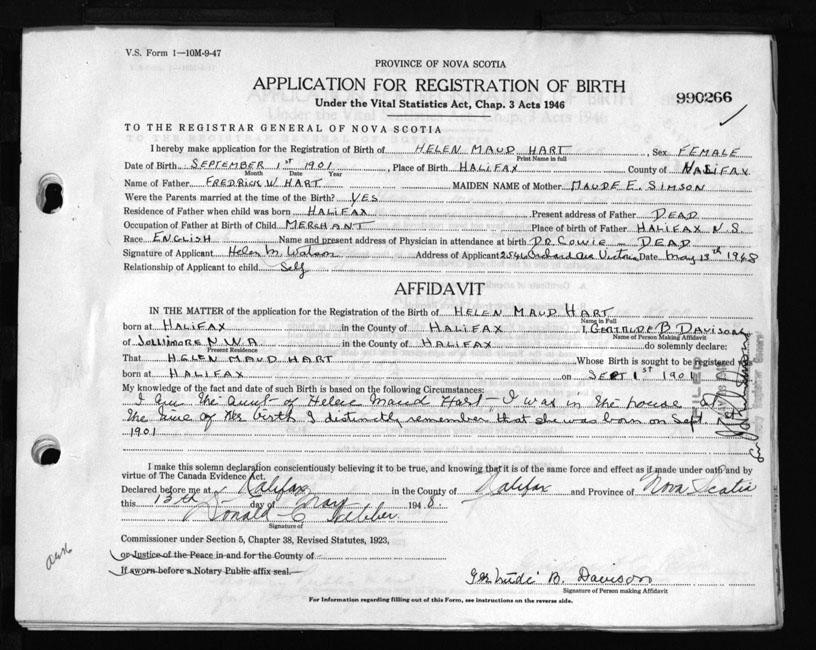 V.S. Form 1—10M-9-47
PROVINCE OF NOVA SCOTIA
APPLICATION FOR REGISTRATION OF BIRTH
Under the Vital Statistics Act, Chap. 3 Acts 1946
990266
TO THE REGISTRAR GENERAL OF NOVA SCOTIA
I hereby make application for the Registration of Birth of HELEN MAUD HART, Sex FEMALE
Print Name in full
Date of Birth SEPTEMBER 1st 1901, Place of Birth HALIFAX County of HALIFAX
Month Date Year
Name of Father FREDRICK W. HART MAIDEN NAME of Mother MAUDE E. SIMSON
Were the Parents married at the time of the Birth? YES
Residence of Father when child was born HALIFAX Present address of Father DEAD
Occupation of Father at Birth of Child MERCHANT Place of birth of Father HALIFAX N.S.
Race ENGLISH Name and present address of Physician in attendance at birth DR. COWIE — DEAD
Signature of Applicant Helen M. Watson Address of Applicant 254 Orchard Ave Victoria Date May 13th 1948
Relationship of Applicant to child Self
AFFIDAVIT
IN THE MATTER of the application for the Registration of the Birth of HELEN MAUD HART
Name in Full
born at HALIFAX in the County of HALIFAX I, GERTRUDE B DAVISON
Name of Person Making Affidavit
of JOLLIMORE N.W.A in the County of HALIFAX do solemnly declare:
Present Residence
That HELEN MAUD HART Whose Birth is sought to be registered was
born at HALIFAX on SEPT 1st 1901
My knowledge of the fact and date of such Birth is based on the following Circumstances:
I am the aunt of Helen Maud Hart — I was in the house at
the time of her birth I distinctly remember that she was born on Sept. 1
1901
FILED
I make this solemn declaration conscientiously believing it to be true, and knowing that it is of the same force and effect as if made under oath and by
virtue of The Canada Evidence Act.
Declared before me at Halifax in the County of Halifax and Province of Nova Scotia
this 13th day of May 1948.
Donald C Webber
Signature of
Commissioner under Section 5, Chapter 38, Revised Statutes, 1923,
or Justice of the Peace in and for the County of
If sworn before a Notary Public affix seal.
Gertrude B. Davison
Signature of Person making Affidavit
For Information regarding filling out of this Form, see instructions on the reverse side.